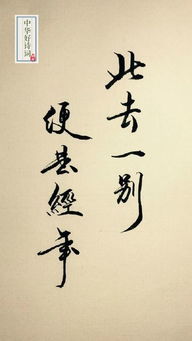 中华好诗词
此去一别
便甚經年